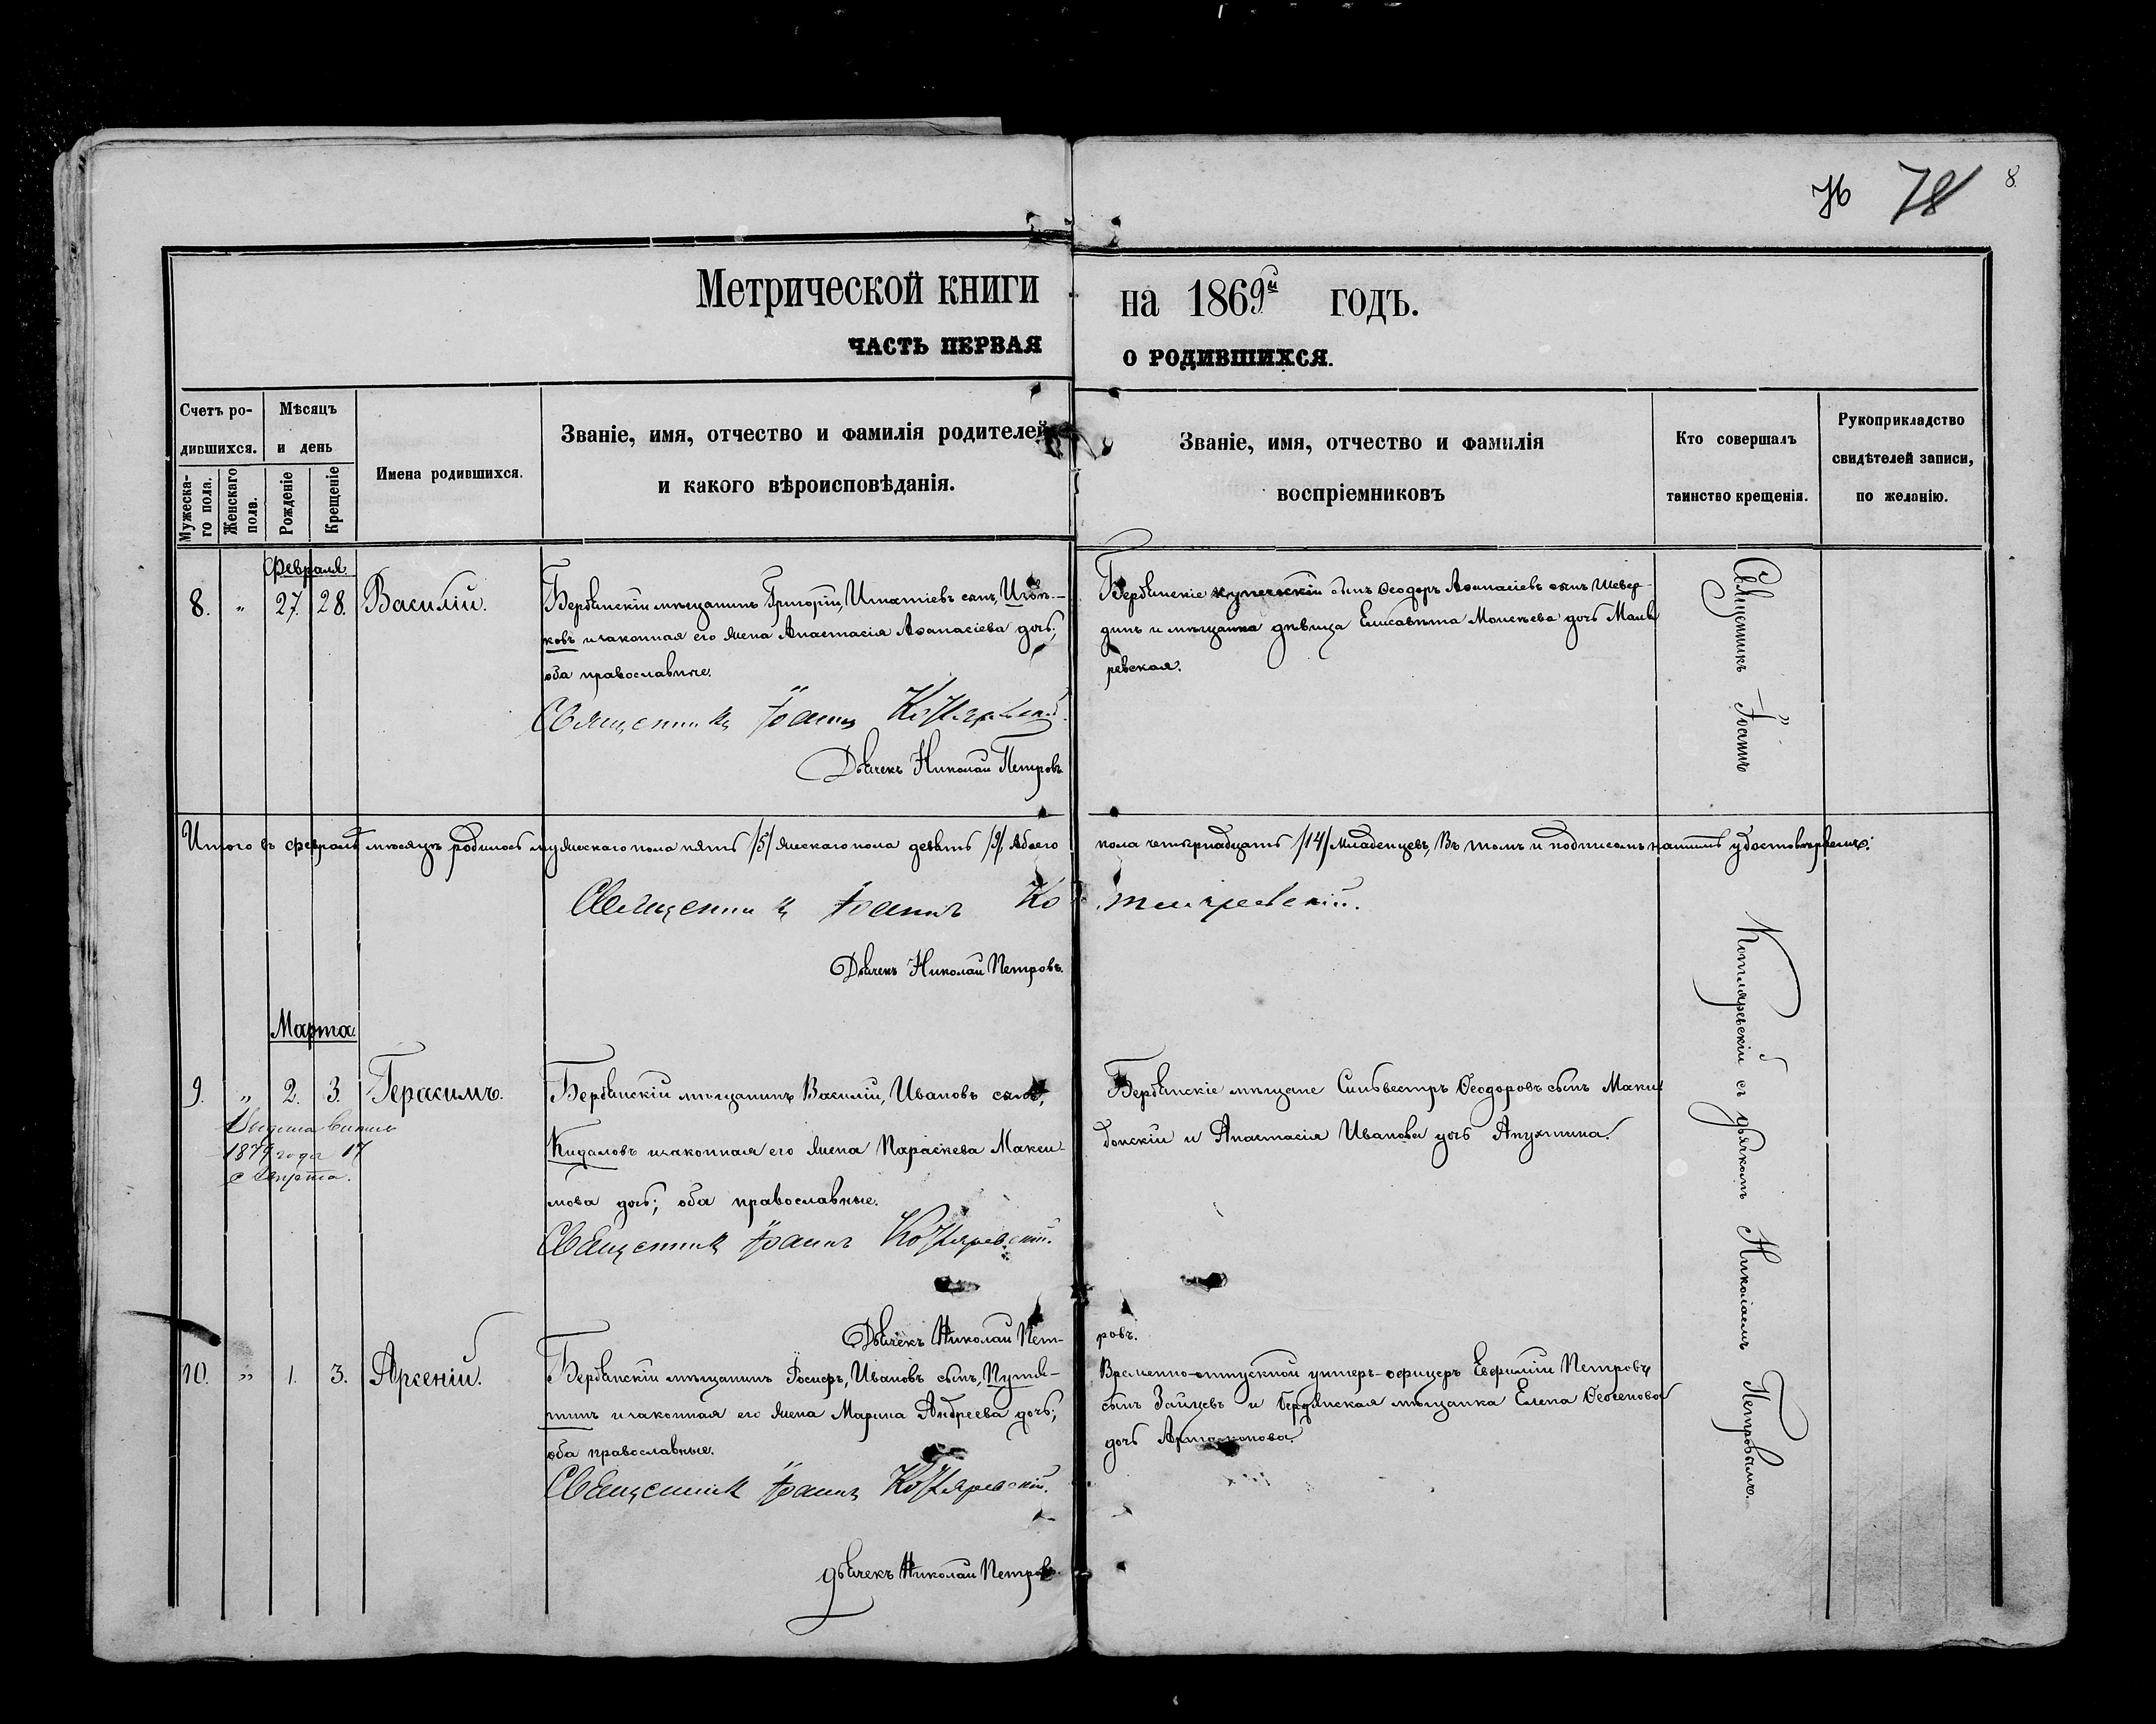 8.
78
Метрической книги на 1869й годъ.
ЧАСТЬ ПЕРВАЯ О РОДИВШИХСЯ.
Счетъ ро-
дившихся.
Мужеска-
го пола.
Женскаго
пола.
Мѣсяцъ
и день
Рожденіе
Крещеніе
Имена родившихся.
Званіе, имя, отчество и фамилія родителей
и какого вѣроисповѣданія.
Званіе, имя, отчество и фамилія
воспріемниковъ
Кто совершалъ
таинство крещенія.
Рукоприкладство
свидѣтелей записи,
по желанію.
Февраля.
8. " 27. 28. Василій.
Бердянскій мѣщанинъ Григорій, Игнатіевъ сынъ,
ковъ и законная его жена Анастасія Аѳанасіева дочь;
оба православные.
Священникъ Іоаннъ Котляревскій.
Дьячекъ Николай Петровъ.
Бердянскіе купеческій сынъ Ѳеодоръ Аѳанасіевъ сынъ Шевер-
динъ и мѣщанка дѣвица Елисавета Моисѣева дочь
ревская.
Итого въ февралѣ мѣсяцѣ родилось мужескаго пола пять /5/ женскаго пола девять /9/ обоего пола четырнадцать /14/ младенцевъ, Въ томъ и подписомъ нашимъ удостовѣряемъ:
Священникъ Іоаннъ Котляревскій.
Дьячекъ Николай Петровъ.
Марта.
9. " 2. 3. Герасимъ.
1879 года 17
Бердянскій мѣщанинъ Василій, Ивановъ сынъ,
Кидаловъ и законная его жена Параскева Макси-
мова дочь; оба православные.
Священникъ Іоаннъ Котляревскій.
Дьячекъ Николай Пет-
ровъ.
Бердянскіе мѣщане Сильвестръ Ѳеодоровъ сынъ Маки-
донскій и Анастасія Иванова дочь Апухтина.
10. " 1. 3. Арсеній.
Бердянскій мѣщанинъ Іосифъ, Ивановъ сынъ, Путя-
тинъ и законная его жена Марина Андреева дочь;
оба православные.
Священникъ Іоаннъ Котляревскій.
Дьячекъ Николай Петровъ.
Временно-отпускной унтеръ-офицеръ Евфимій Петровъ
сынъ Зайцевъ и бердянская мѣщанка Елена
дочь
Священникъ Іоаннъ Котляревскій съ дьячкомъ Николаемъ Петровымъ.